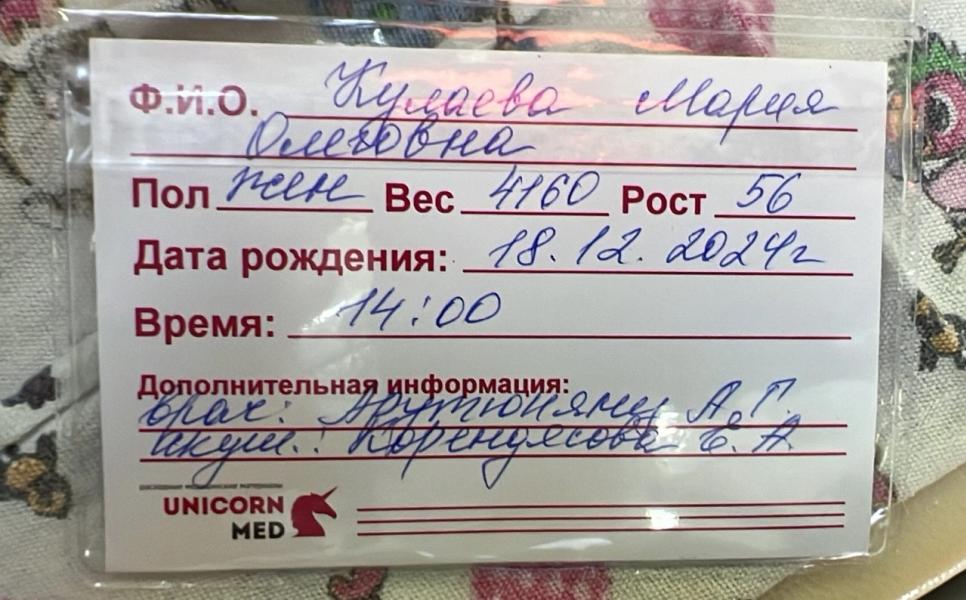 Ф.И.О. Кулаева Мария
Олеговна
Пол жен Вес 4160 Рост 56
Дата рождения: 18.12.2024г
Время: 14:00
Дополнительная информация:
врач: Арутюнянц А.Г.
акуш.: Корендясова Е.А.
расходные медицинские материалы
UNICORN
MED